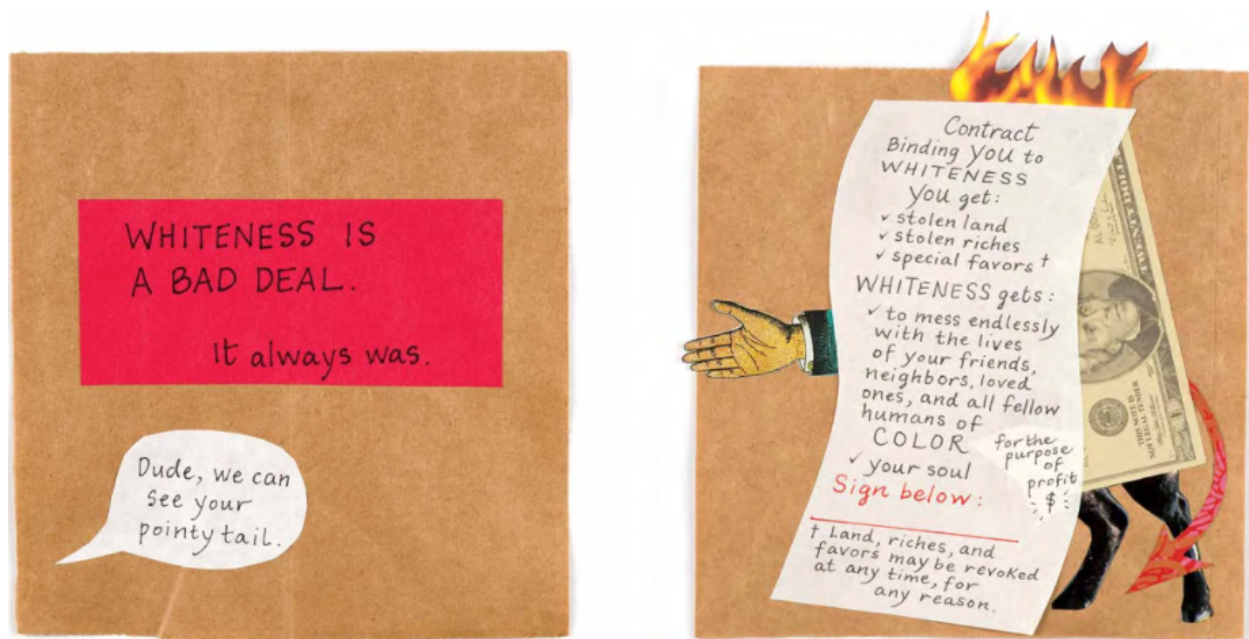 WHITENESS IS
A BAD DEAL.
It always was.
Dude, we can
see your
pointy tail.
Contract
Binding YOU to
WHITENESS
You get:
✓ stolen land
✓ stolen riches
✓ special favors †
WHITENESS gets:
✓ to mess endlessly
with the lives
of your friends,
neighbors, loved
ones, and all fellow
humans of
COLOR
✓ your soul
for the
purpose
of
profit
$
Sign below:
† Land, riches, and
favors may be revoked
at any time, for
any reason.
THIS NOTE IS
NOT LEGAL TENDER